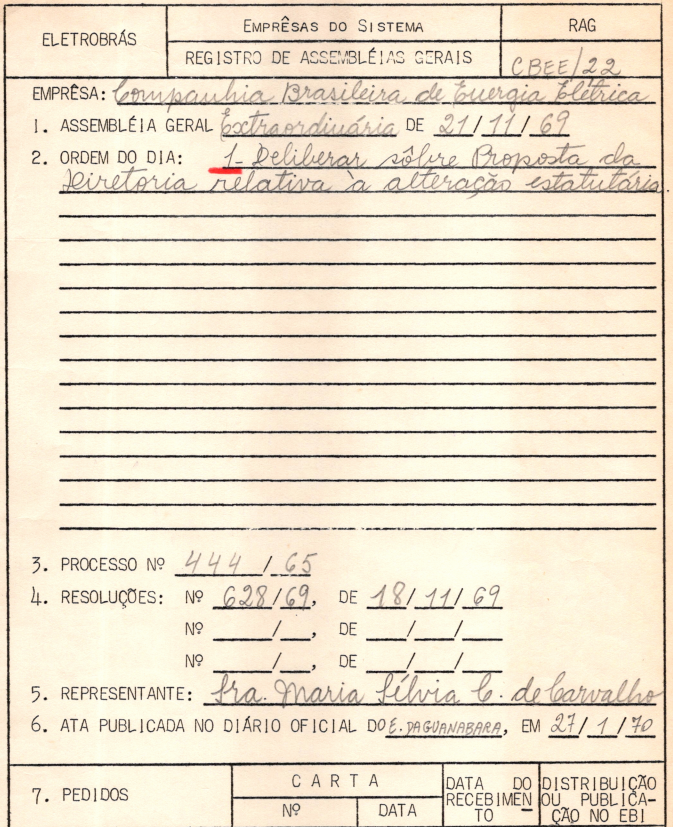 ELETROBRÁS
EMPRÊSAS DO SISTEMA
RAG
REGISTRO DE ASSEMBLÉIAS GERAIS
CBEE/22
EMPRÊSA: Companhia Brasileira de Energia Elétrica
1. ASSEMBLÉIA GERAL Extraordinária DE 21/11/69
2. ORDEM DO DIA: 1- Deliberar sôbre Proposta da
Diretoria relativa à alteração estatutária.
3. PROCESSO Nº 444/65
4. RESOLUÇÕES: Nº 628/69, DE 18/11/69
Nº / , DE / /
Nº / , DE / /
5. REPRESENTANTE: Sra. Maria Sílvia C. de Carvalho
6. ATA PUBLICADA NO DIÁRIO OFICIAL DO E. DA GUANABARA, EM 27/1/70
7. PEDIDOS
CARTA
Nº
DATA
DATA DO
RECEBIMEN
TO
DISTRIBUIÇÃO
OU PUBLICA-
ÇÃO NO EBI